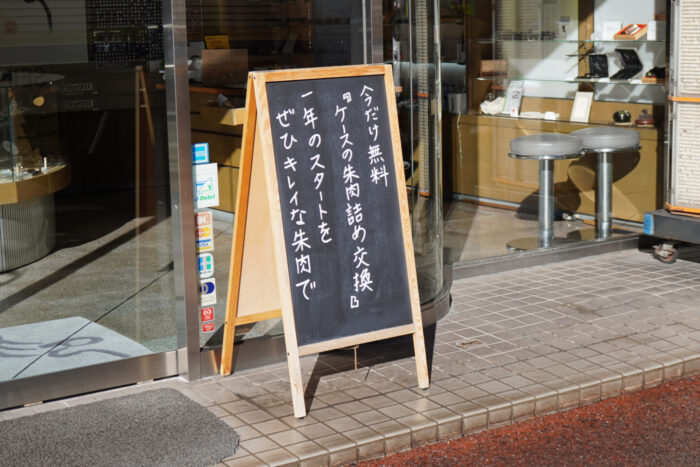 今だけ無料
『ケースの朱肉詰め交換』
一年のスタートを
ぜひキレイな朱肉で
Debit